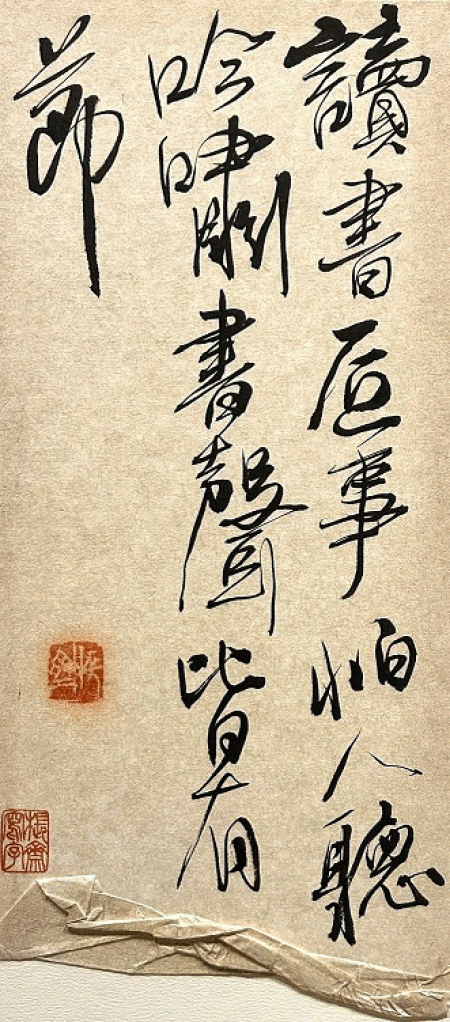 讀書底事怕人聽
吟嘯書聲皆有
節